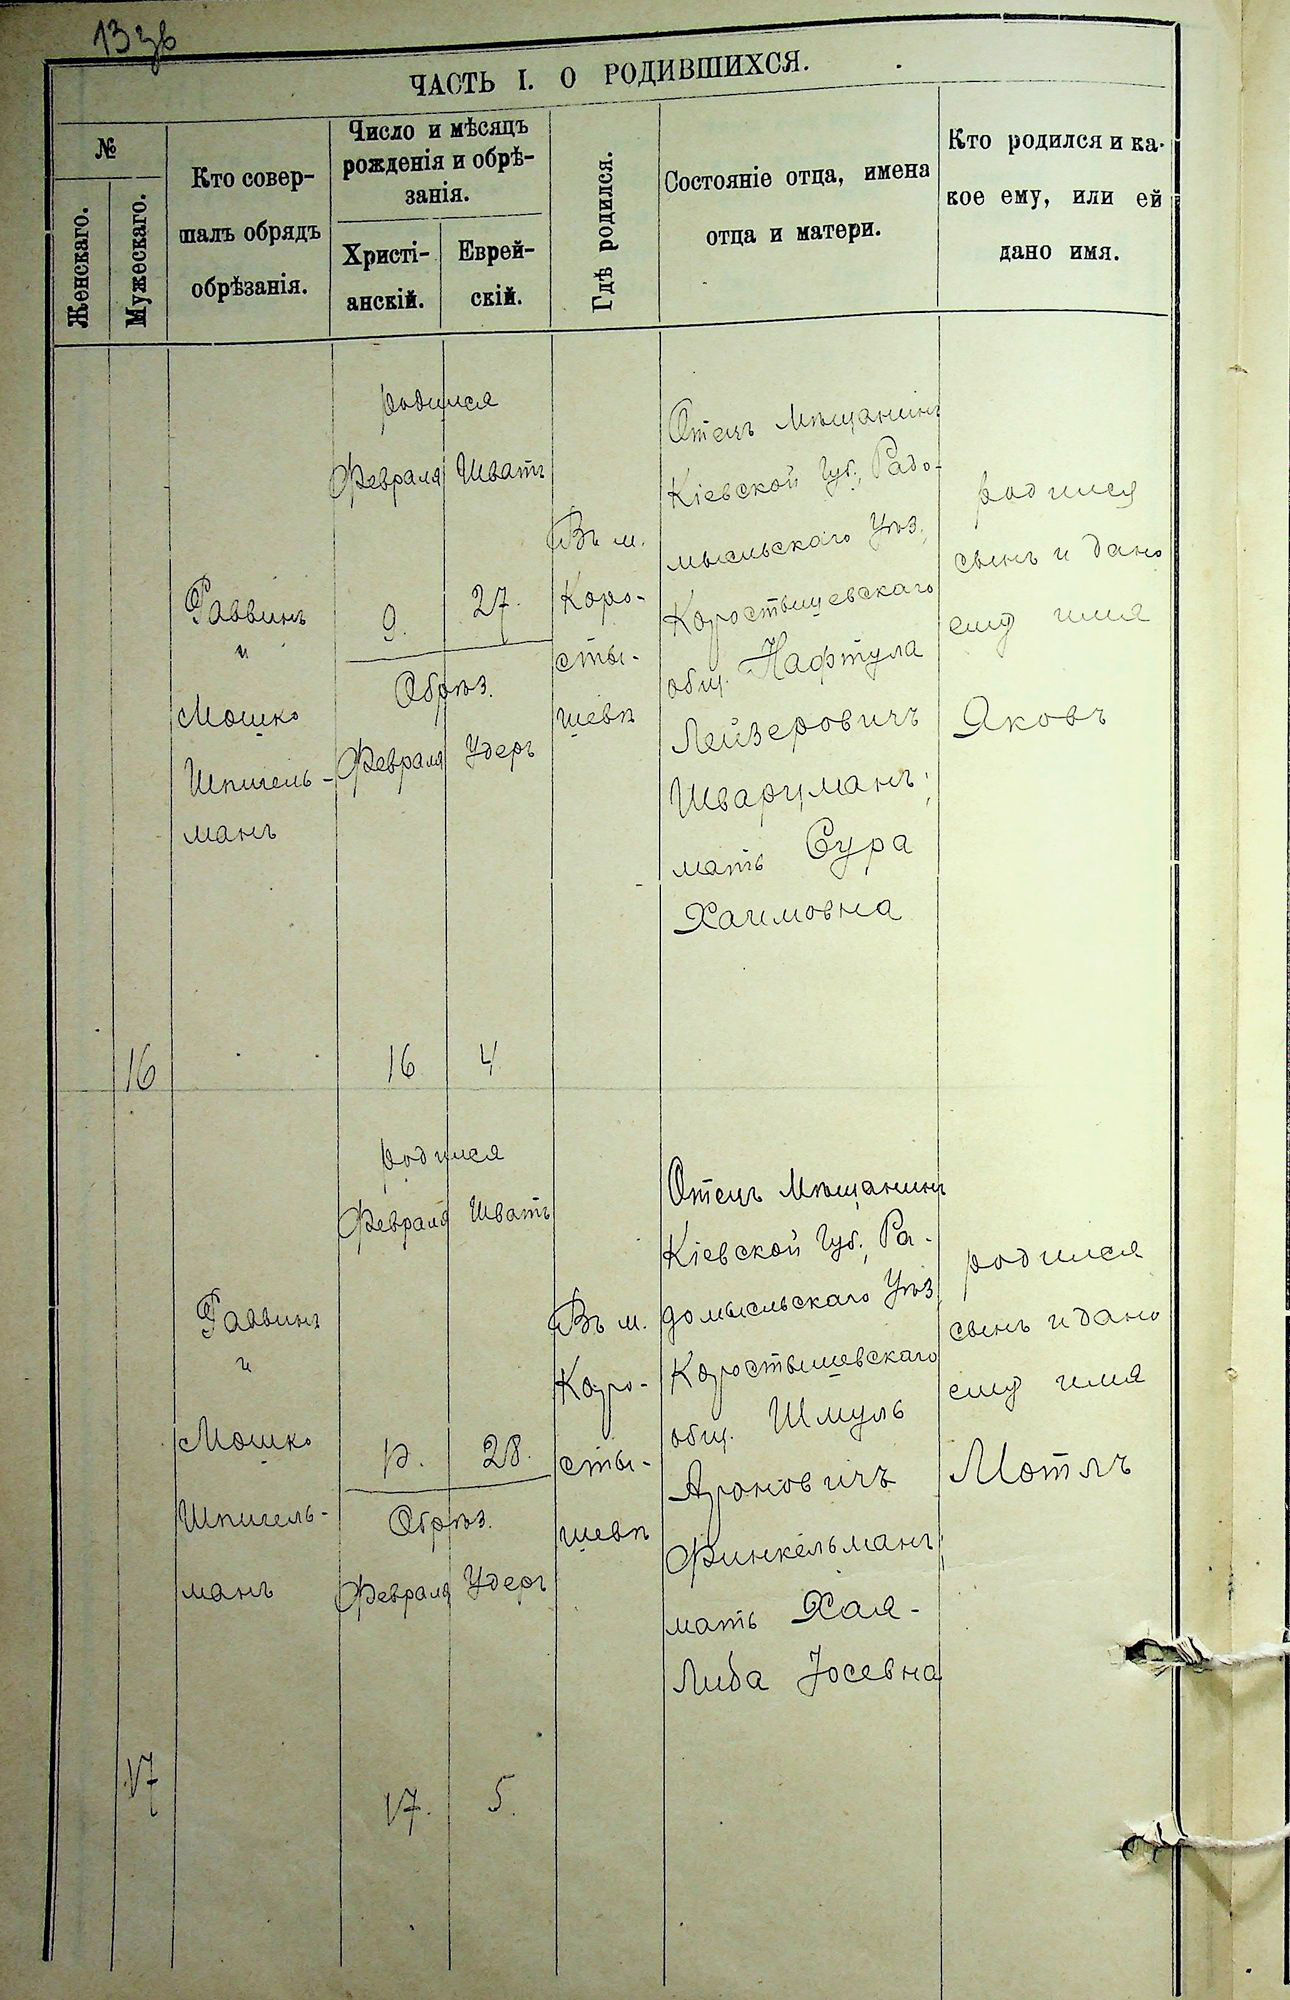 13 зв
ЧАСТЬ I. О РОДИВШИХСЯ.
№
Женскаго.
Мужескаго.
Кто совер-
шалъ обрядъ
обрѣзанія.
Число и мѣсяцъ
рожденія и обрѣ-
занія.
Христі-
анскій.
Еврей-
скій.
Гдѣ родился.
Состояніе отца, имена
отца и матери.
Кто родился и ка-
кое ему, или ей
дано имя.
16
Раввинъ
и
Мошко
Шпигель-
манъ
родился
Февраля Шватъ
9. 27.
Обрѣз.
Февраля Удеръ
16 4
Въ м.
Коро-
сты-
шевѣ
Отецъ Мѣщанинъ
Кіевской Губ., Радо-
мысльскаго Уѣз,
Коростышевскаго
общ. Нафтула
Лейзеровичъ
Шварцманъ;
мать Сура
Хаимовна
родился
сынъ и дано
ему имя
Яковъ
17
Раввинъ
и
Мошко
Шпигель-
манъ
родился
Февраля Шватъ
10. 28.
Обрѣз.
Февраля Удеръ
17. 5.
Въ м.
Коро-
сты-
шевѣ
Отецъ Мѣщанинъ
Кіевской Губ., Ра-
домысльскаго Уѣз,
Коростышевскаго
общ. Шмуль
Ароновичъ
Финкельманъ;
мать Хая-
Либа Іосевна
родился
сынъ и дано
ему имя
Мотль